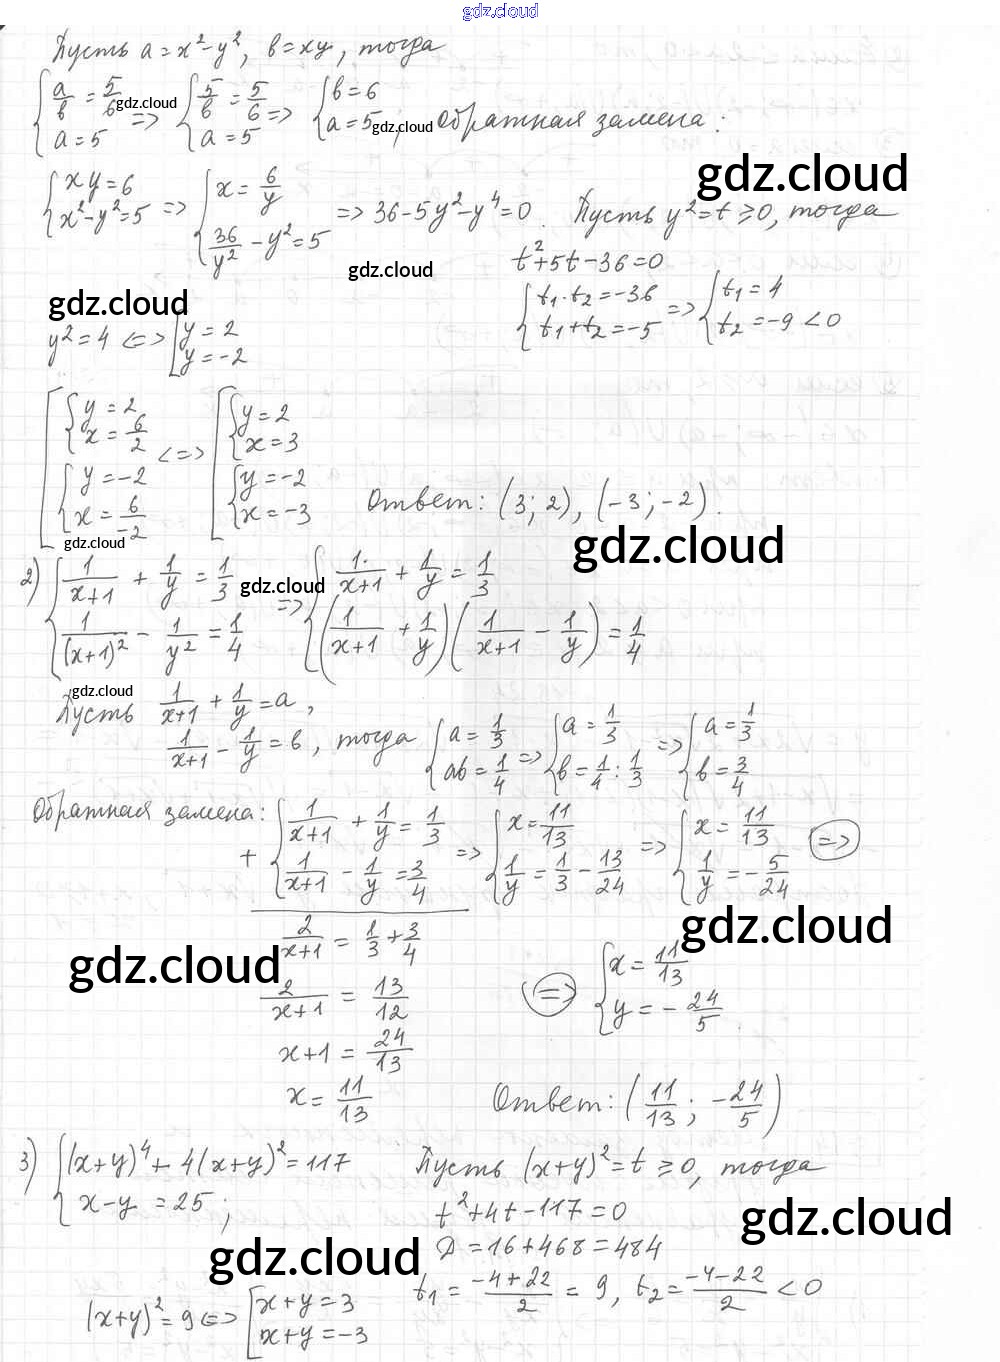 gdz.cloud
Пусть a = x² - y², b = xy, тогда
{ a/b = 5/6, a = 5 => { 5/b = 5/6, a = 5 => { b = 6, a = 5; обратная замена:
gdz.cloud gdz.cloud
gdz.cloud
{ xy = 6, x² - y² = 5 => { x = 6/y, 36/y² - y² = 5 => 36 - 5y² - y⁴ = 0. Пусть y² = t ≥ 0, тогда
t² + 5t - 36 = 0
gdz.cloud
gdz.cloud
{ t₁ · t₂ = -36, t₁ + t₂ = -5 => { t₁ = 4, t₂ = -9 < 0
y² = 4 <=> [ y = 2, y = -2
[ { y = 2, x = 6/2; { y = -2, x = 6/-2 <=> [ { y = 2, x = 3; { y = -2, x = -3
Ответ: (3; 2), (-3; -2).
gdz.cloud gdz.cloud
2) { 1/(x+1) + 1/y = 1/3, 1/(x+1)² - 1/y² = 1/4 => { 1/(x+1) + 1/y = 1/3, (1/(x+1) + 1/y)(1/(x+1) - 1/y) = 1/4
gdz.cloud
gdz.cloud
Пусть 1/(x+1) + 1/y = a,
1/(x+1) - 1/y = b, тогда { a = 1/3, ab = 1/4 => { a = 1/3, b = 1/4 : 1/3 => { a = 1/3, b = 3/4
Обратная замена: + { 1/(x+1) + 1/y = 1/3, 1/(x+1) - 1/y = 3/4 => { x = 11/13, 1/y = 1/3 - 13/24 => { x = 11/13, 1/y = -5/24 =>
gdz.cloud
2/(x+1) = 1/3 + 3/4
gdz.cloud
2/(x+1) = 13/12 => { x = 11/13, y = -24/5
x+1 = 24/13
x = 11/13
Ответ: (11/13; -24/5)
3) { (x+y)⁴ + 4(x+y)² = 117, x - y = 25; Пусть (x+y)² = t ≥ 0, тогда
t² + 4t - 117 = 0
gdz.cloud
D = 16 + 468 = 484
gdz.cloud
t₁ = (-4+22)/2 = 9, t₂ = (-4-22)/2 < 0
(x+y)² = 9 <=> [ x+y = 3, x+y = -3